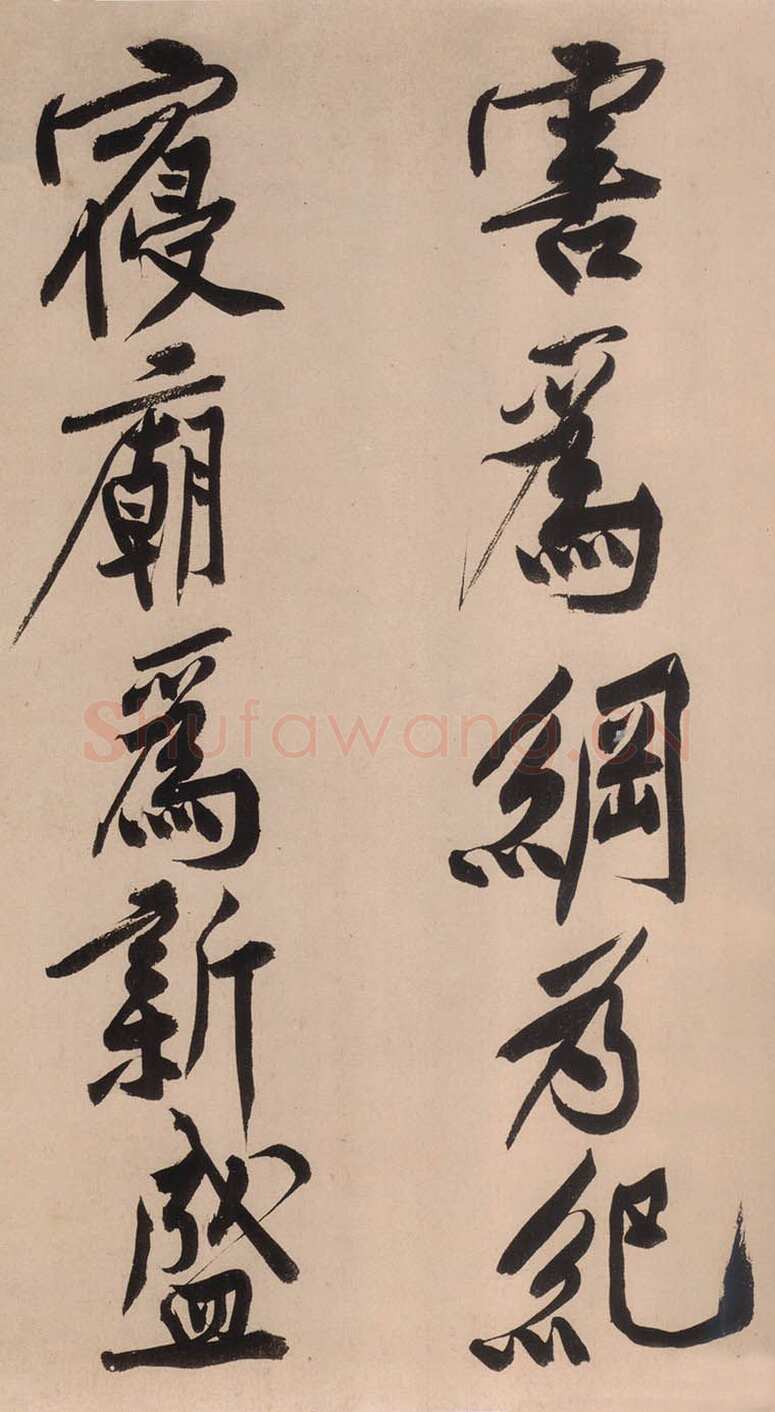 害爲綱為紀
寑廟爲新盛
Shufawang.CN